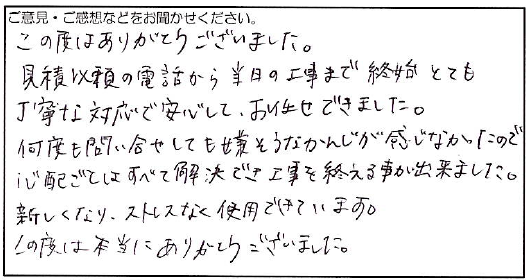 ご意見・ご感想などをお聞かせください。
この度はありがとうございました。
見積以頼の電話から当日の工事まで終始とても
丁寧な対応で安心して、お任せできました。
何度も問い合せしても嫌そうなかんじが感じなかったので
心配ごとはすべて解決でき工事を終える事が出来ました。
新しくなり、ストレスなく使用できています。
この度は本当にありがとうございました。